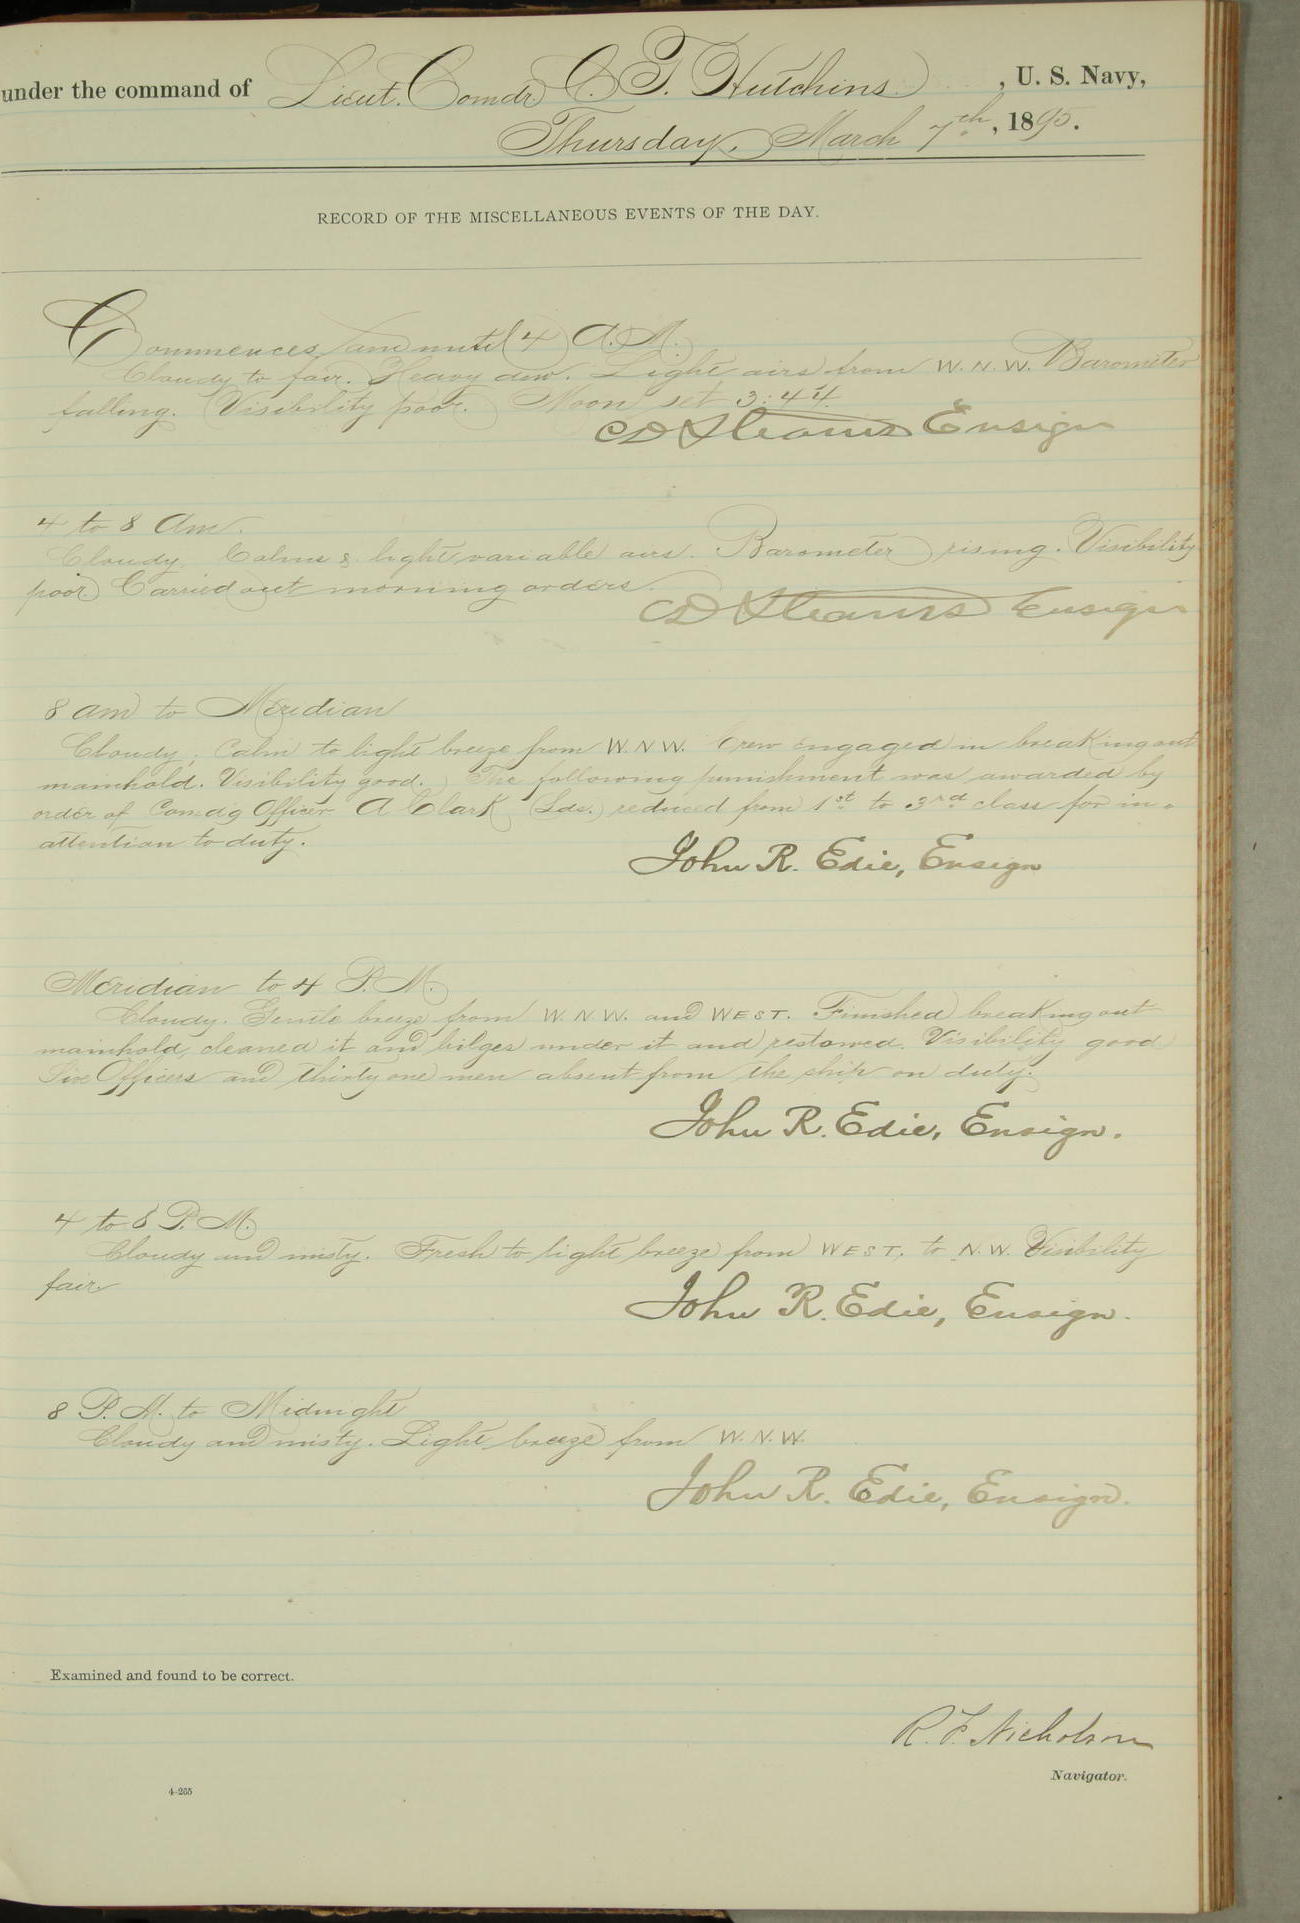 under the command of Lieut. Comdr C. T. Hutchins, U. S. Navy,
Thursday, March 7th, 1895.
RECORD OF THE MISCELLANEOUS EVENTS OF THE DAY.
Commences and until 4 A.M.
Cloudy to fair. Heavy dew. Light airs from W.N.W. Barometer
falling. Visibility poor. Moon set 3:44.
CD Stearns Ensign
4 to 8 Am.
Cloudy. Calms & light variable airs. Barometer rising. Visibility
poor. Carried out morning orders.
CD Stearns Ensign
8 am to Meridian
Cloudy; Calm to light breeze from W.N.W. Crew engaged in breaking out
mainhold. Visibility good. The following punishment was awarded by
order of Comd'g Officer A Clark (Lds.) reduced from 1st to 3rd class for in-
attention to duty.
John R. Edie, Ensign
Meridian to 4 P.M.
Cloudy. Gentle breeze from W.N.W. and WEST. Finished breaking out
mainhold, cleaned it and bilges under it and restowed. Visibility good
Officers and thirty one men absent from the ship on duty.
John R. Edie, Ensign.
4 to 8 P.M.
Cloudy and misty. Fresh to light breeze from WEST. to N.W. Visibility
fair
John R. Edie, Ensign.
8 P.M. to Midnight
Cloudy and misty. Light breeze from W.N.W.
John R. Edie, Ensign.
Examined and found to be correct.
R. F. Nicholson
Navigator.
4-265